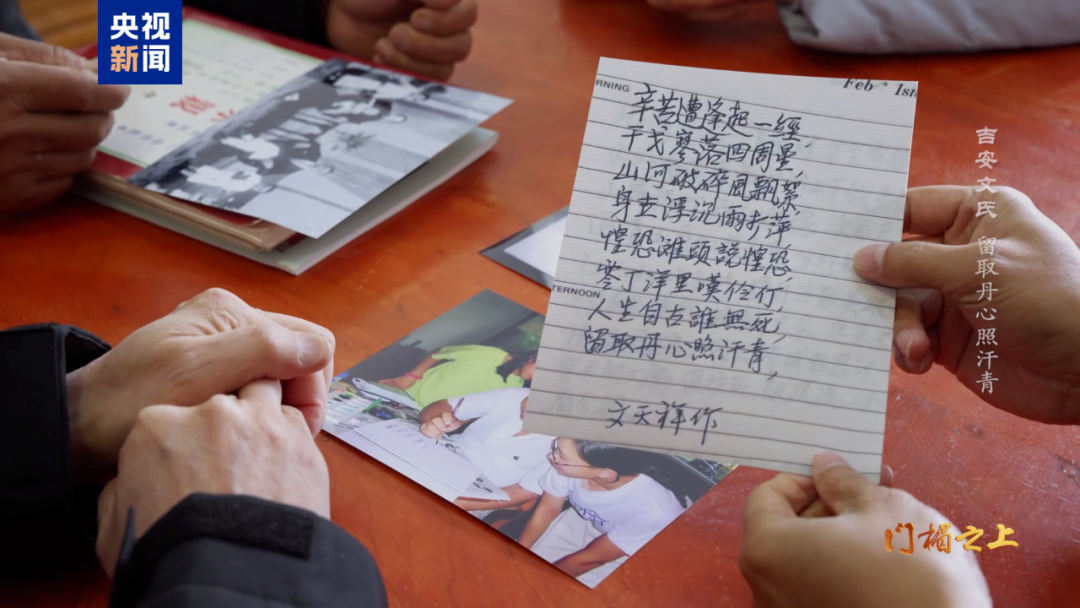 央视
新闻
RNING
Feb · 1st
辛苦遭逢起一經,
干戈寥落四周星,
山河破碎風飄絮,
身世浮沉雨打萍,
惶恐灘頭說惶恐,
零丁洋里嘆伶仃,
TERNOON
人生自古誰無死,
留取丹心照汗青,
文天祥作
吉安文氏 留取丹心照汗青
门楣之上